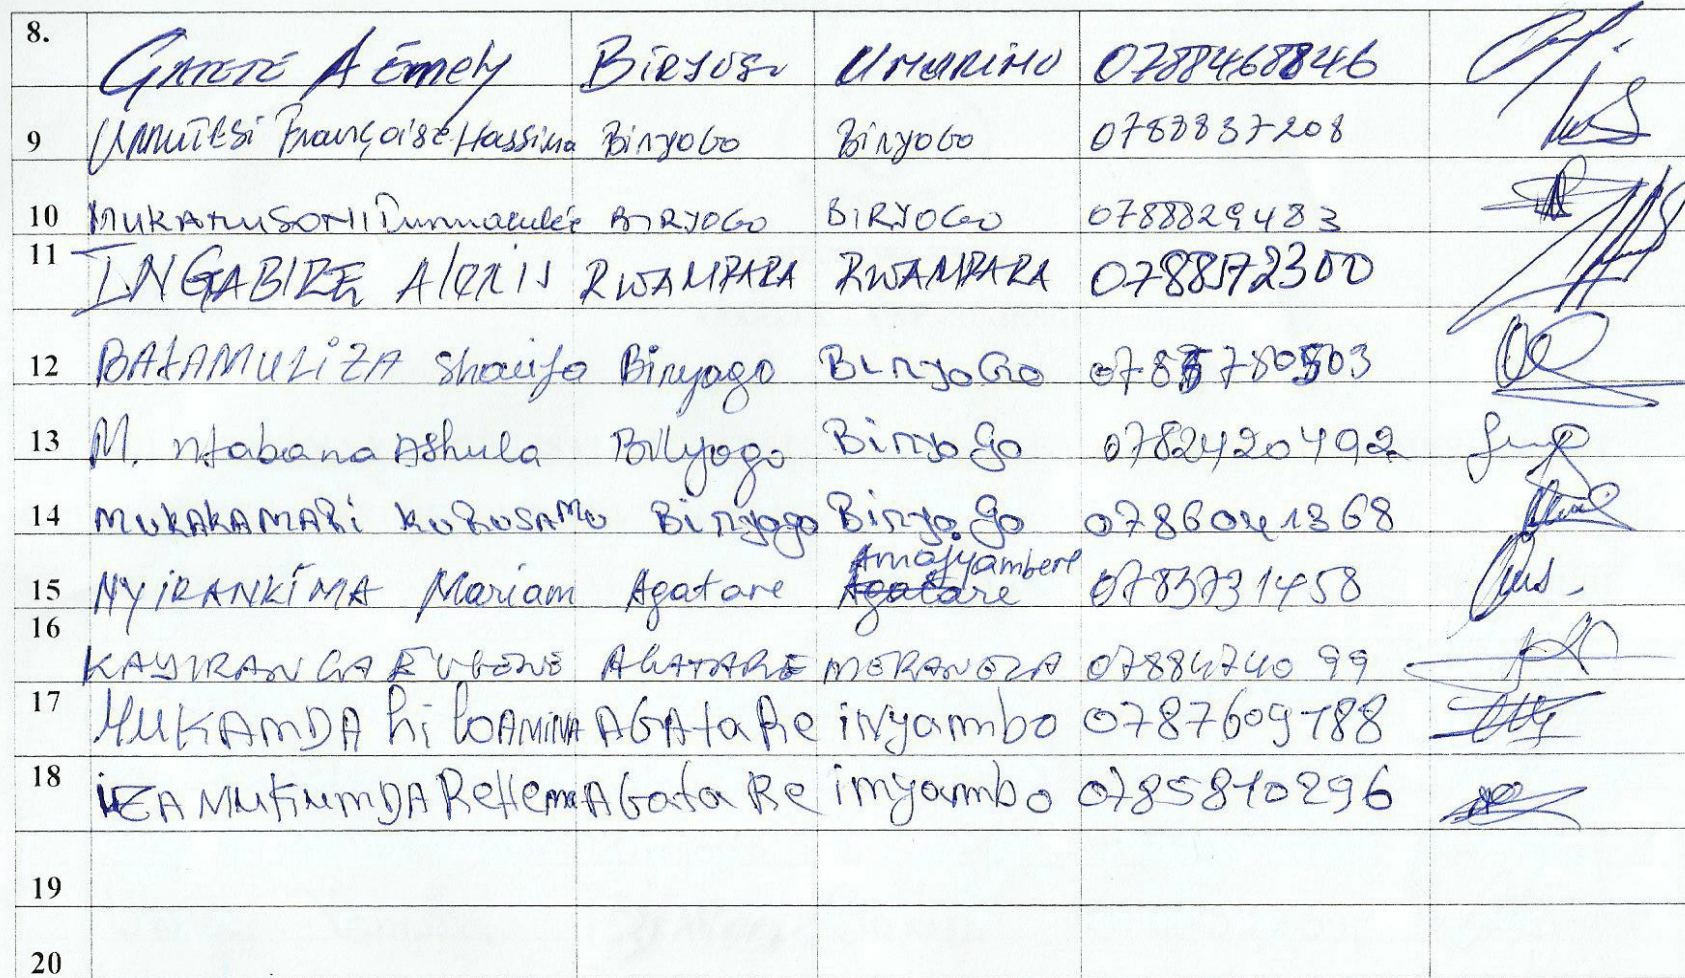 8. GATETE A Emely BiRyogo UMURIMO 0788468846
9 UMMUTESi Françoise Hassina BiRyoGo BiRyoGo 0788837208
10 MUKAMUSONI Immaculée BIRYOGO BIRYOGO 0788829483
11 INGABIRE Alexis RWAMPARA RWAMPARA 0788572300
12 BATAMULIZA Sharifa Biryogo BiryoGo 0785780503
13 M. Ntabana Ashula Bilyogo Biryogo 0782420492
14 MUKAKAMARi KURUSAMU Biryogo Biryogo 0786041368
Amajyambere
15 NYiRANKiMA Mariam Agatare Agatare 0783731458
16 KAYIRANGA EUGENE AGATARE MERANEZA 0788474099
17 MUKAMDA hi loAMINA AGAtaRe inyambo 0787609188
18 iZAMukumDA ReHema AGataRe imyambo 0785810296
19
20